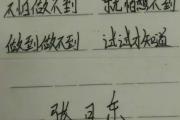 不怕做不到 就怕想不到
做到做不到 试试才知道
张卫东